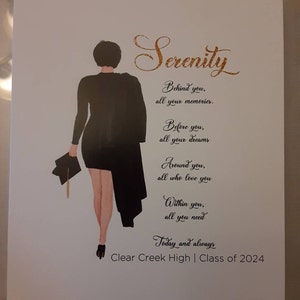 Serenity
Behind you,
all your memories.
Before you,
all your dreams
Around you,
all who love you
Within you,
all you need
Today and always
Clear Creek High | Class of 2024